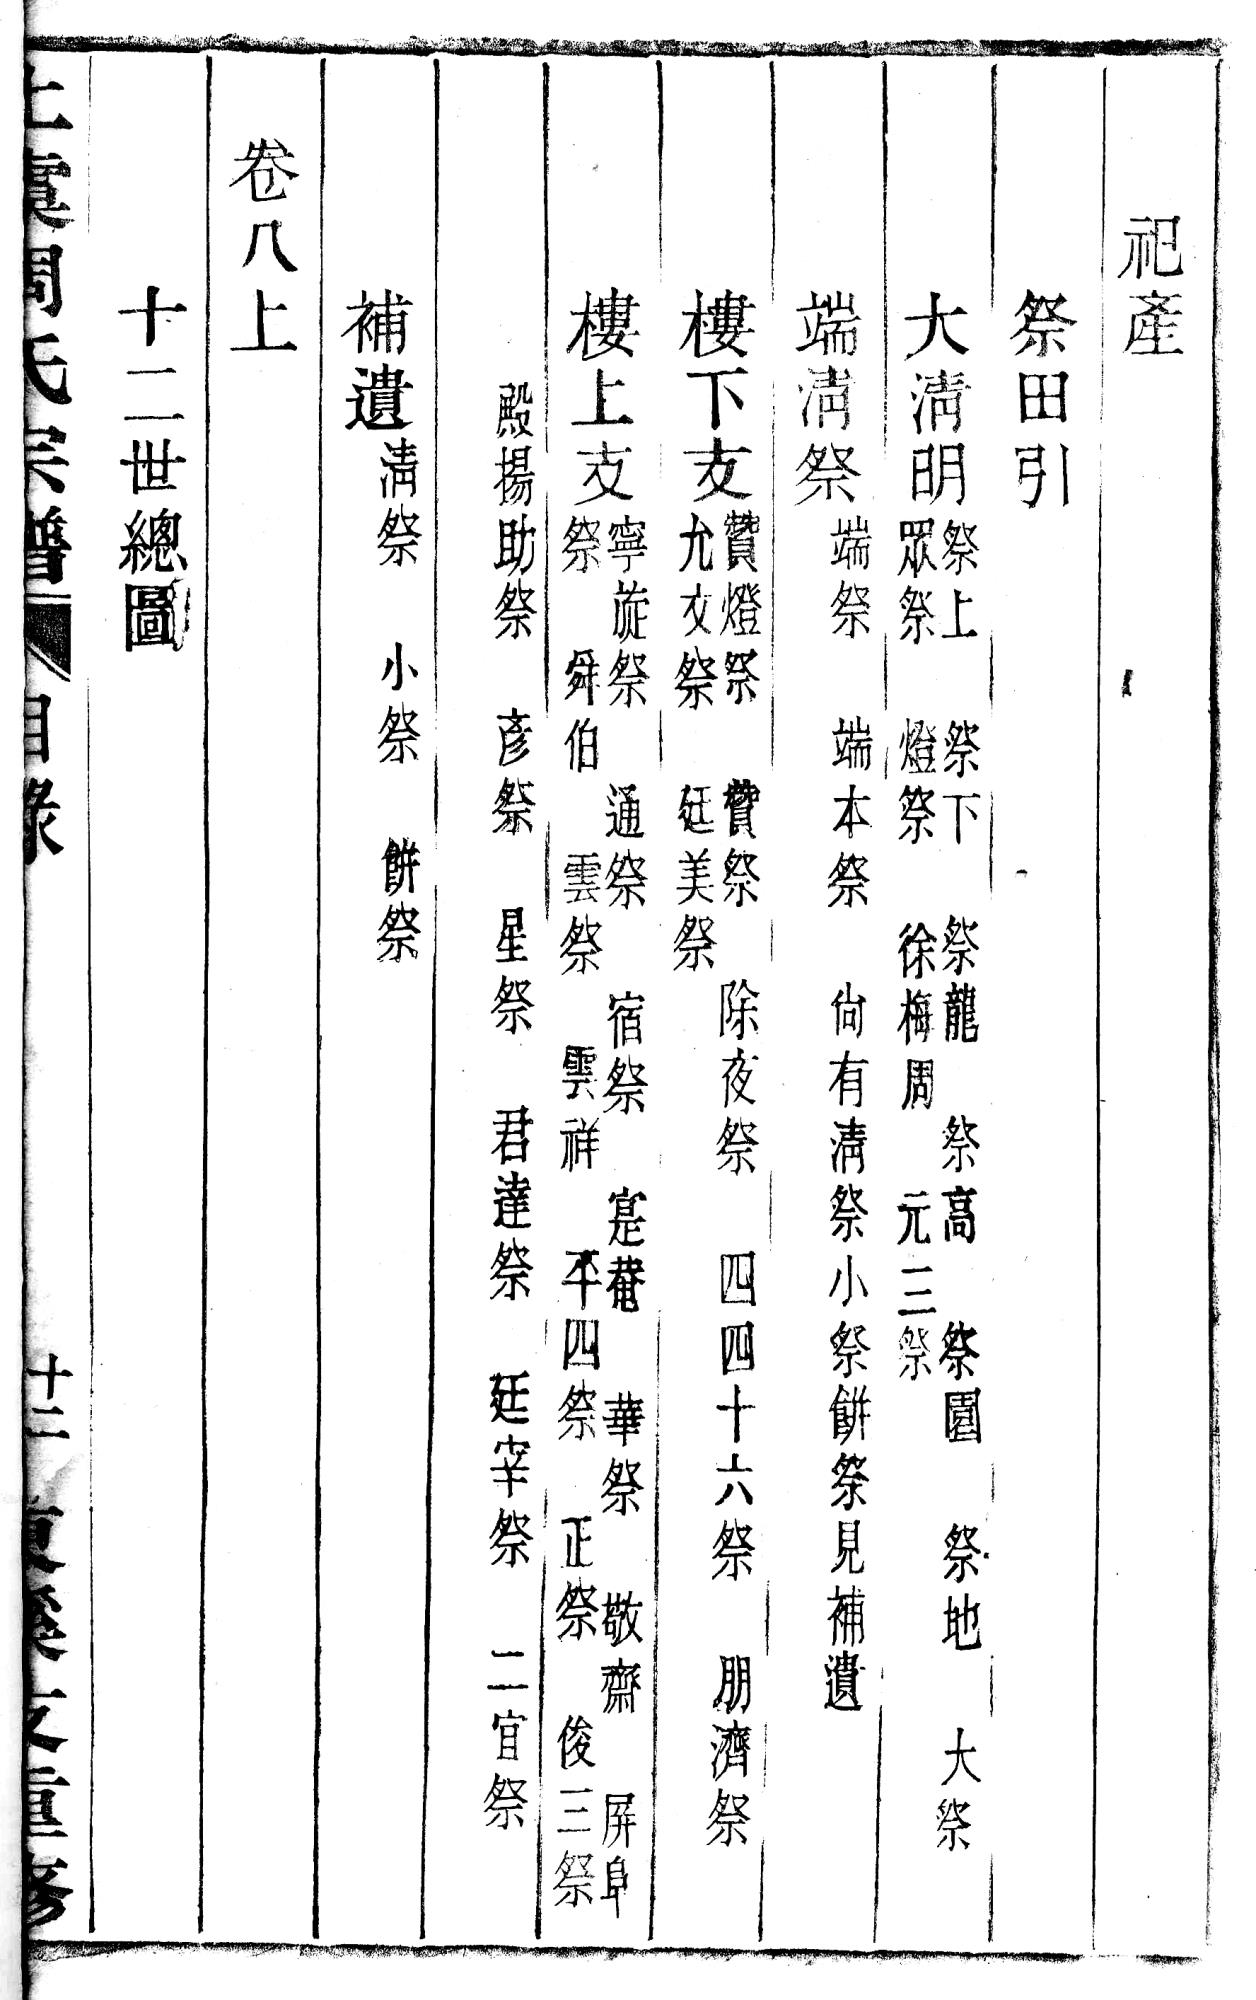 祀產
祭田引
大清明
祭上 祭下 祭龍 祭高 祭園 祭地 大祭
眾祭 燈祭 徐梅周 元三祭
端清祭 端祭 端本祭 尙有清祭小祭餅祭見補遺
樓下支
贊燈祭 贊祭 除夜祭 四四十六祭 朋濟祭
允文祭 廷美祭
樓上支
寧旋祭 通祭 宿祭 寔菴 華祭 敬齋 屏阜
祭 舜伯 雲祭 雲祥 平四祭 正祭 俊三祭
殿揚助祭 彥祭 星祭 君達祭 廷宰祭 二官祭
補遺 清祭 小祭 餅祭
卷八上
十二世總圖
上虞周氏宗譜 目錄 十二 東溪支重修